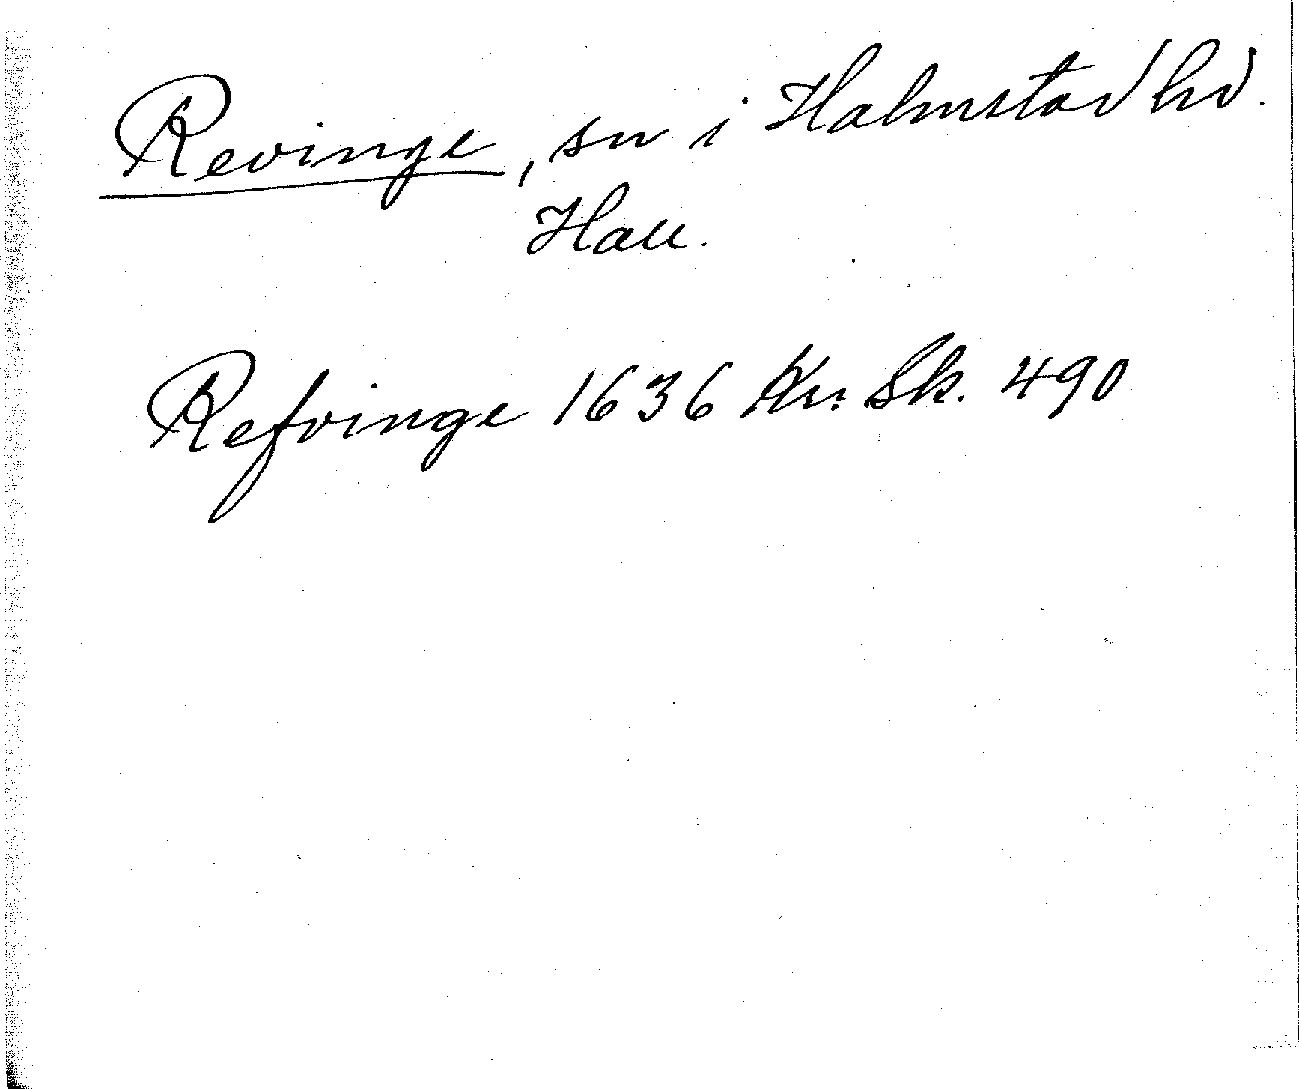 Revinge, sn i Halmstad hd.
Hall.
Refvinge 1636 Kr. Sk. 490